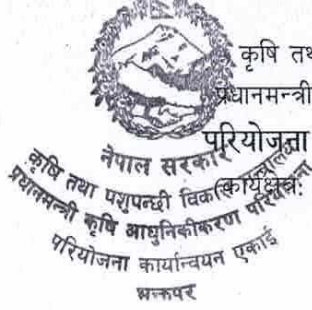 कृषि तथ
प्रधानमन्त्री
परियोजना
(कार्यक्षेत्र:
नेपाल सरकार
कृषि तथा पशुपन्छी विकास मन्त्रालय
प्रधानमन्त्री कृषि आधुनिकीकरण परियोजना
परियोजना कार्यान्वयन एकाई
भक्तपुर